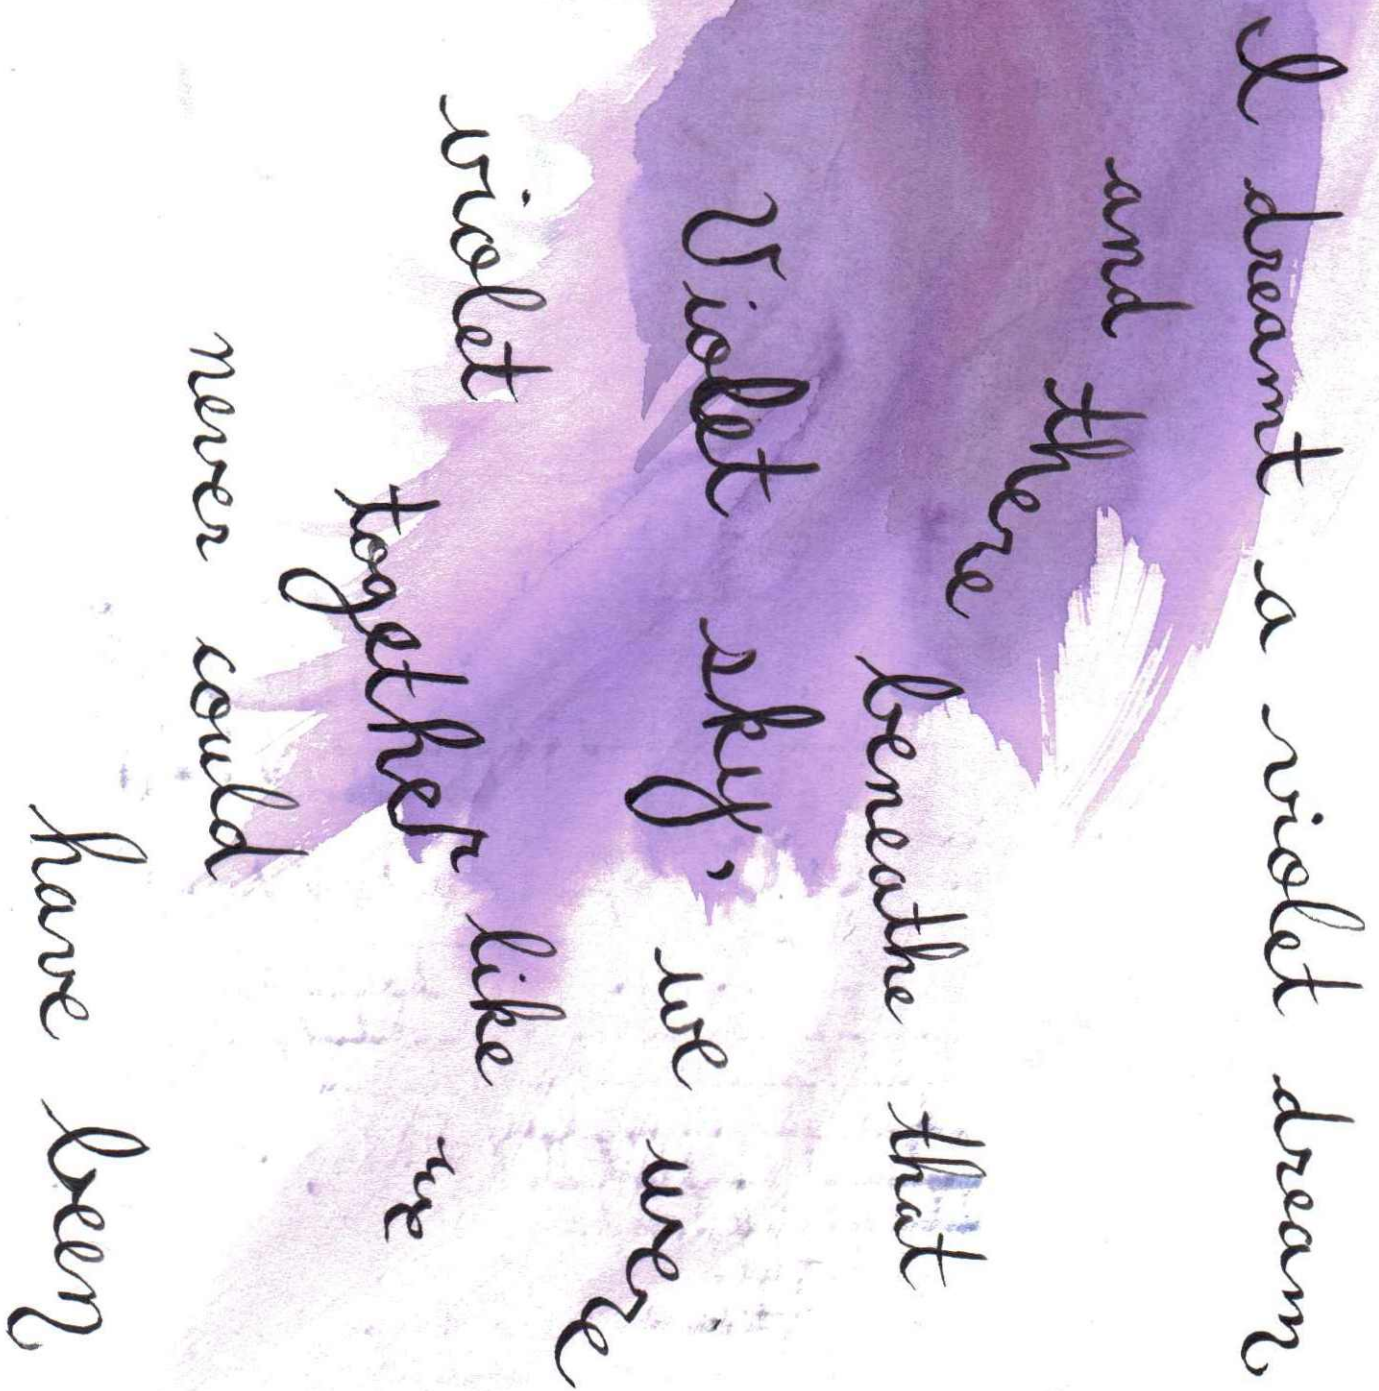 I dreamt a violet dream
and there beneathe that
Violet sky, we were
violet together like we
never could
have been